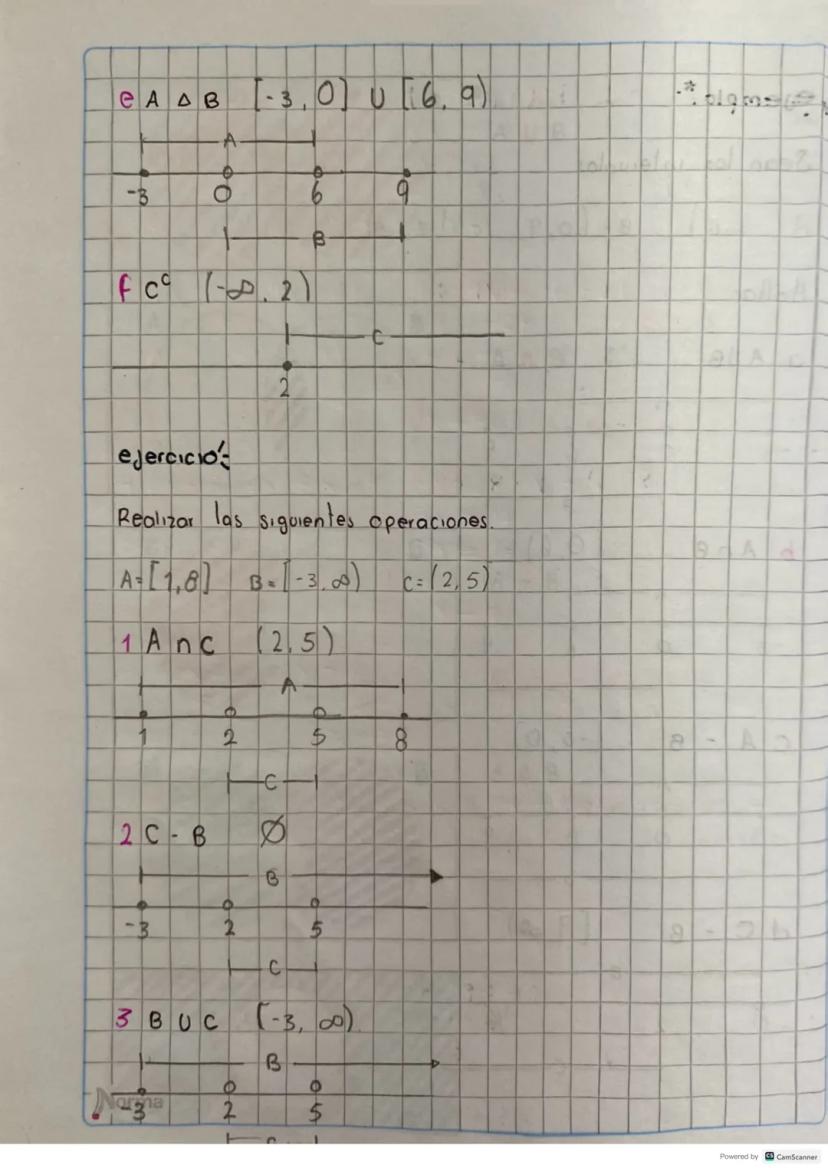 e A Δ B [-3, 0] ∪ [6, 9)
A
-3 0 6 9
B
f Cᶜ (-∞, 2)
C
2
ejercicio:
Realizar las siguientes operaciones.
A=[1,8] B=[-3,∞) C=(2,5)
1 A ∩ C (2,5)
A
1 2 5 8
C
2 C - B Ø
B
-3 2 5
C
3 B ∪ C [-3, ∞)
B
Norma
-3 2 5
Powered by CS CamScanner